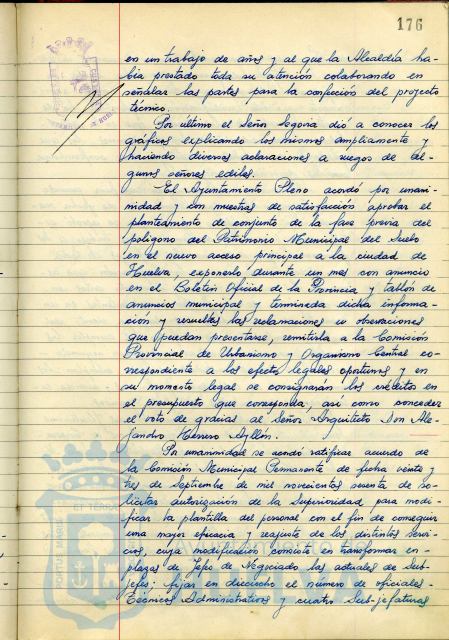 176
en un trabajo de años y al que la Alcaldía ha-
bía prestado toda su atención colaborando en
señalar las partes para la confección del proyecto
técnico.
Por último el Señor Segovia dió a conocer los
gráficos explicando los mismos ampliamente y
haciendo diversas aclaraciones a ruegos de al-
gunos señores ediles.
El Ayuntamiento Pleno acordó por unani-
midad y con muestras de satisfacción aprobar el
planteamiento de conjunto de la fase previa del
polígono del Patrimonio Municipal del Suelo
en el nuevo acceso principal a la ciudad de
Huelva, exponerlo durante un mes con anuncio
en el Boletín Oficial de la Provincia y tablón de
anuncios municipal y terminada dicha informa-
ción y resueltas las reclamaciones u observaciones
que puedan presentarse, remitirla a la Comisión
Provincial de Urbanismo y Organismo Central co-
rrespondiente a los efectos legales oportunos y en
su momento legal se consignarán los créditos en
el presupuesto que corresponda, así como conceder
el voto de gracias al Señor Arquitecto Don Ale-
jandro Herrero Ayllón.
Por unanimidad se acordó ratificar acuerdo de
la Comisión Municipal Permanente de fecha veinte y
tres de Septiembre de mil novecientos sesenta de so-
licitar autorización de la Superioridad para modi-
ficar la plantilla del personal con el fin de conseguir
una mayor eficacia y reajuste de los distintos servi-
cios, cuya modificación consiste en transformar en
plazas de Jefes de Negociado las actuales de Sub-
jefes; fijar en dieciocho el número de oficiales
Técnicos Administrativos y cuatro Sub-jefaturas
PORTUS MARIS
ET TERRAE